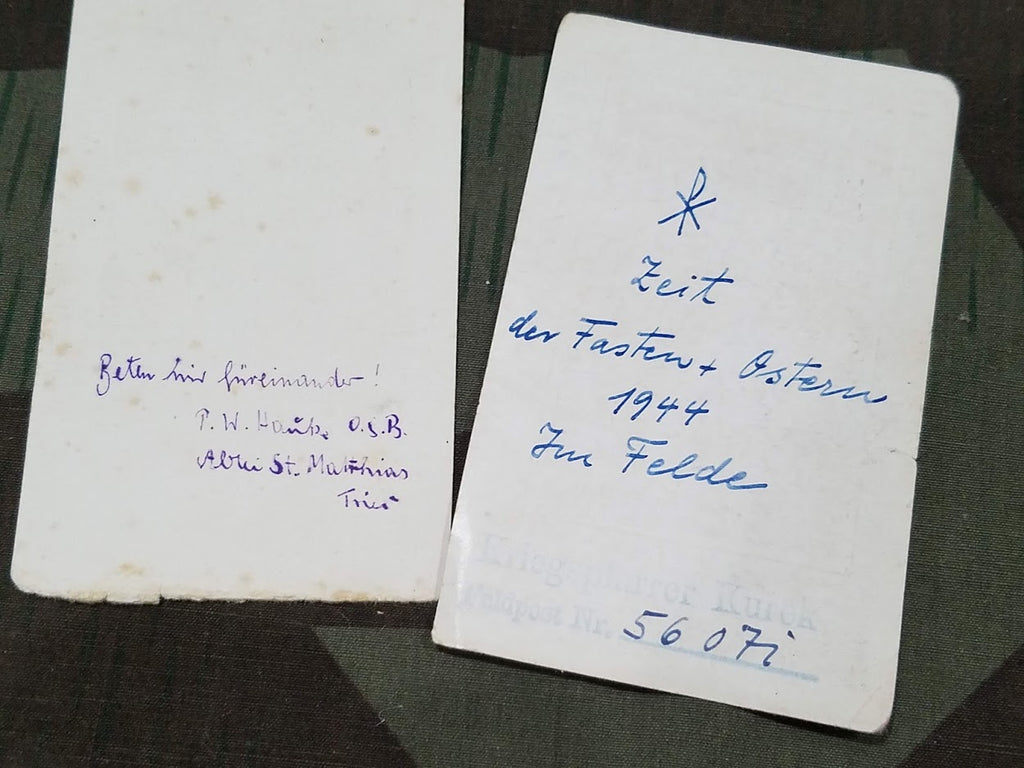 Beten wir füreinander!
P. W. O.S.B.
Abtei St. Matthias
Trier
Zeit
der Fasten + Ostern
1944
Im Felde
Kriegspfarrer Kurek
Feldpost Nr. 56 07i